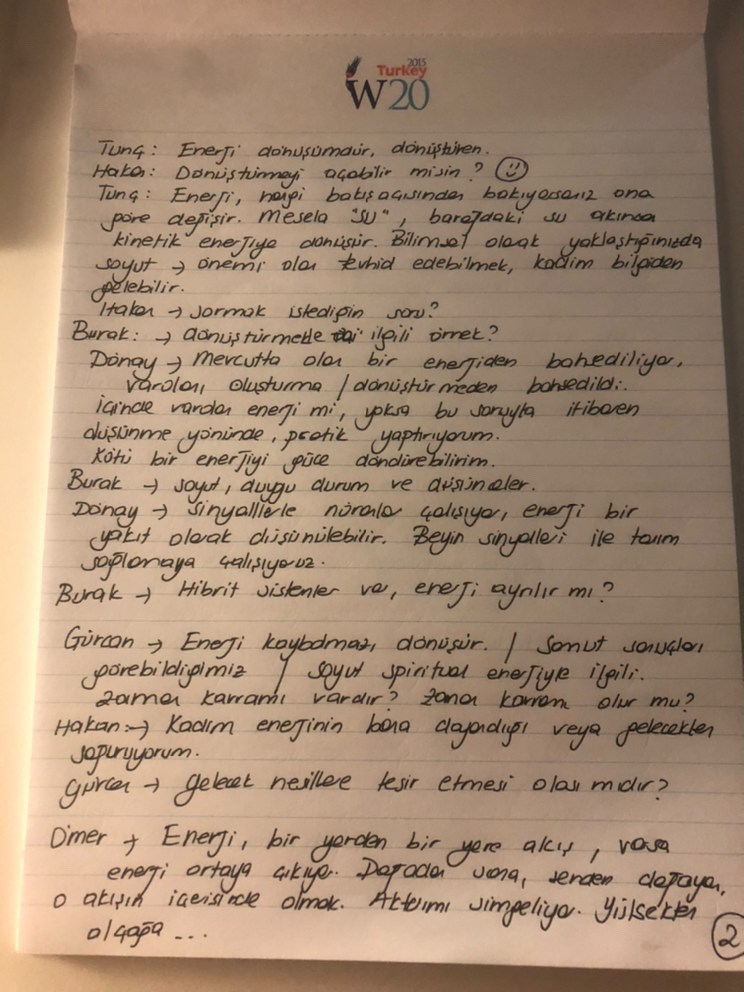 2015
Turkey
W20
Tunç: Enerji dönüşümdür, dönüştüren.
Hakan: Dönüştürmeyi açabilir misin?
Tunç: Enerji, hangi bakış açısından bakıyorsanız ona
göre değişir. Mesela "su", barajdaki su akınca
kinetik enerjiye dönüşür. Bilimsel olarak yaklaştığınızda
soyut → önemi olan tevhid edebilmek, kadim bilgiden
gelebilir.
Hakan → sormak istediğin soru?
Burak: → dönüştürmekle ilgili örnek?
Dönay → Mevcutta olan bir enerjiden bahsediliyor,
varolanı oluşturma / dönüştürmeden bahsedildi.
İçinde vardan enerji mi, yoksa bu soruyla itibaren
düşünme yönünde, pratik yaptırıyorum.
Kötü bir enerjiyi güce döndürebilirim.
Burak → soyut, duygu durum ve düşünceler.
Dönay → Sinyallerle nöronlar çalışıyor, enerji bir
yakıt olarak düşünülebilir. Beyin sinyalleri ile tanım
sağlamaya çalışıyoruz.
Burak → Hibrit sistemler var, enerji ayrılır mı?
Gürcan → Enerji kaybolmaz, dönüşür. / Somut sonuçları
görebildiğimiz / soyut spiritual enerjiyle ilgili.
Zaman kavramı vardır? Zaman kavramı olur mu?
Hakan: → Kadim enerjinin bana dayandığı veya gelecekten
sapıtıyorum.
Gürcan → gelecek nesillere tesir etmesi olası mıdır?
Ömer → Enerji, bir yerden bir yere akış, varsa
enerji ortaya çıkıyor. Doğadan sana, senden doğaya,
o akışın içerisinde olmak. Aktarımı simgeliyor. Yüksekten
alçağa ...
2